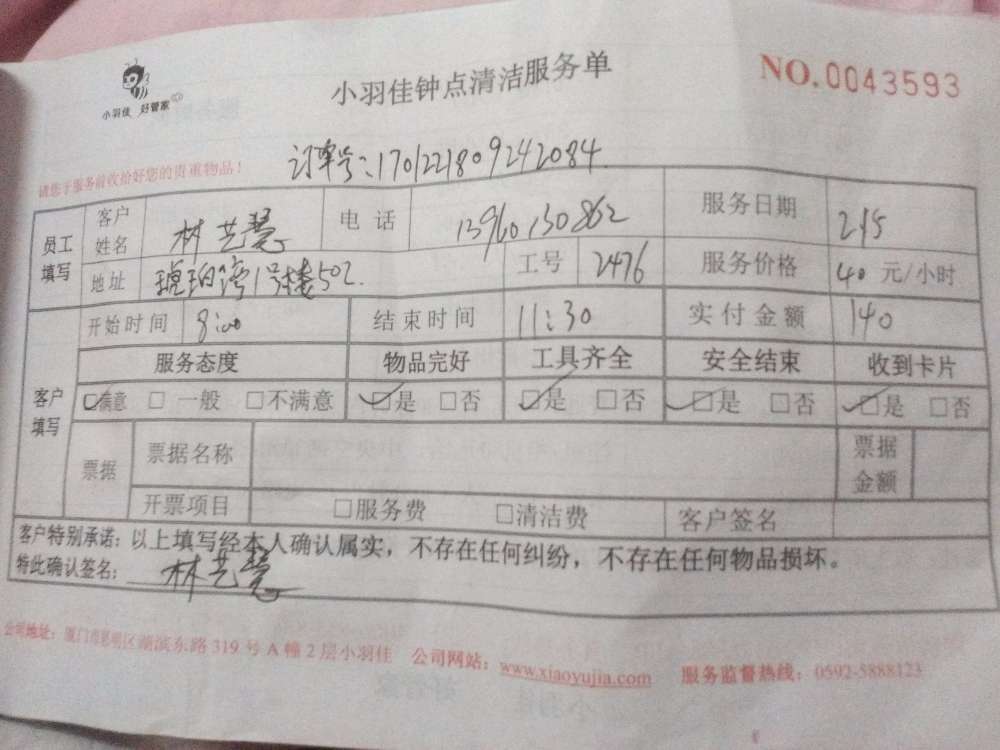 小羽佳 好管家
小羽佳钟点清洁服务单
NO.0043593
请您于服务前收拾好您的贵重物品！
订单号：1701221809242084
员工填写 客户姓名 林艺慧 电话 13960130862 服务日期 2.15
地址 琥珀湾1号楼502. 工号 2476 服务价格 40 元/小时
客户填写 开始时间 8:00 结束时间 11:30 实付金额 140
服务态度 物品完好 工具齐全 安全结束 收到卡片
☑满意 □一般 □不满意 ☑是 □否 ☑是 □否 ☑是 □否 ☑是 □否
票据 票据名称 票据金额
开票项目 □服务费 □清洁费 客户签名
客户特别承诺：以上填写经本人确认属实，不存在任何纠纷，不存在任何物品损坏。
特此确认签名：林艺慧
公司地址：厦门市思明区湖滨东路319号A幢2层小羽佳 公司网站：www.xiaoyujia.com 服务监督热线：0592-5888123